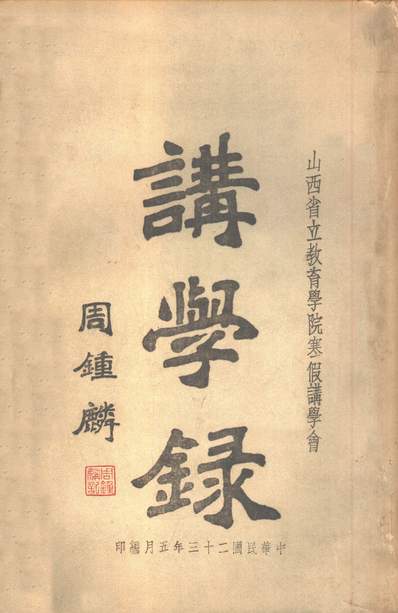 山西省立教育學院寒假講學會
講學録
周鍾麟
中華民國二十三年五月編印